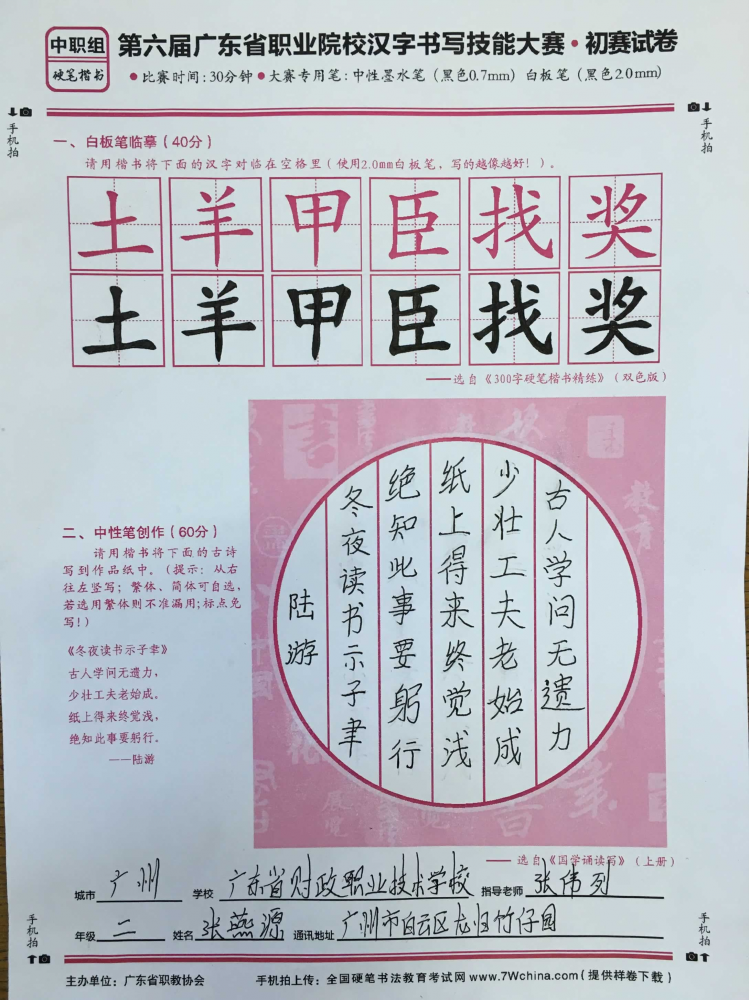 中职组
硬笔楷书
第六届广东省职业院校汉字书写技能大赛·初赛试卷
●比赛时间:30分钟●大赛专用笔:中性墨水笔(黑色0.7mm) 白板笔(黑色2.0mm)
手机拍
手机拍
一、白板笔临摹(40分)
请用楷书将下面的汉字对临在空格里(使用2.0mm白板笔,写的越像越好!)。
土羊甲臣找奖
土羊甲臣找奖
——选自《300字硬笔楷书精练》(双色版)
二、中性笔创作(60分)
请用楷书将下面的古诗
写到作品纸中。(提示:从右
往左竖写;繁体、简体可自选,
若选用繁体则不准漏用;标点免
写!)
《冬夜读书示子聿》
古人学问无遗力,
少壮工夫老始成。
纸上得来终觉浅,
绝知此事要躬行。
——陆游
古人学问无遗力
少壮工夫老始成
纸上得来终觉浅
绝知此事要躬行
冬夜读书示子聿
陆游
教育
——选自《国学诵读写》(上册)
城市 广州 学校 广东省财政职业技术学校 指导老师 张伟列
年级 二 姓名 张燕源 通讯地址 广州市白云区龙归竹仔园
手机拍
手机拍
主办单位:广东省职教协会 手机拍上传:全国硬笔书法教育考试网www.7Wchina.com(提供样卷下载)